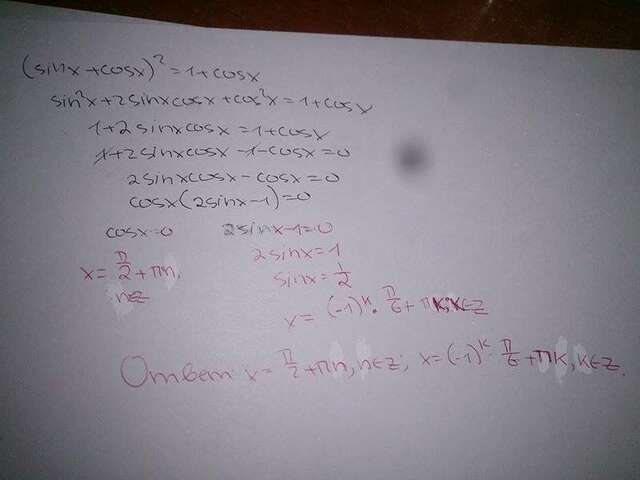 (sinx+cosx)²=1+cosx
sin²x+2sinxcosx+cos²x=1+cosx
1+2sinxcosx=1+cosx
1+2sinxcosx-1-cosx=0
2sinxcosx-cosx=0
cosx(2sinx-1)=0
cosx=0 2sinx-1=0
2sinx=1
x=π/2+πn,
n∈z
sinx=1/2
x=(-1)^k·π/6+πk,k∈z
Ответ: x=π/2+πn,n∈z; x=(-1)^k·π/6+πk,k∈z.